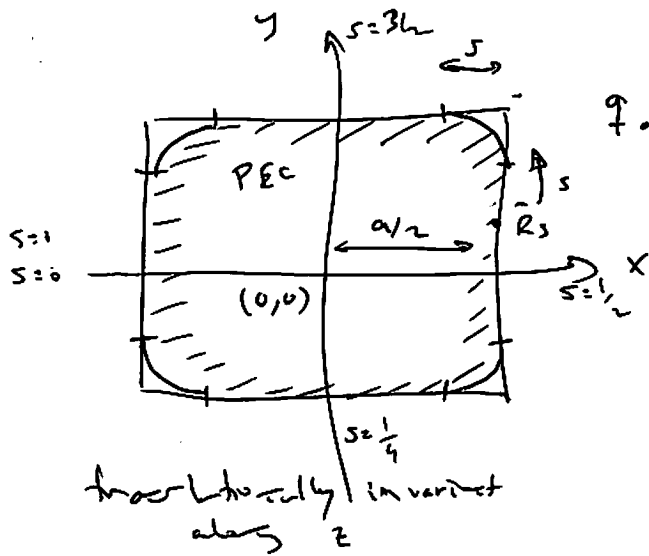 y
s=3/4
s
q.
PEC
s
R̄s
s=1
s=0
a/2
x
(0,0)
s=1/2
s=1/4
translationally invariant
along z